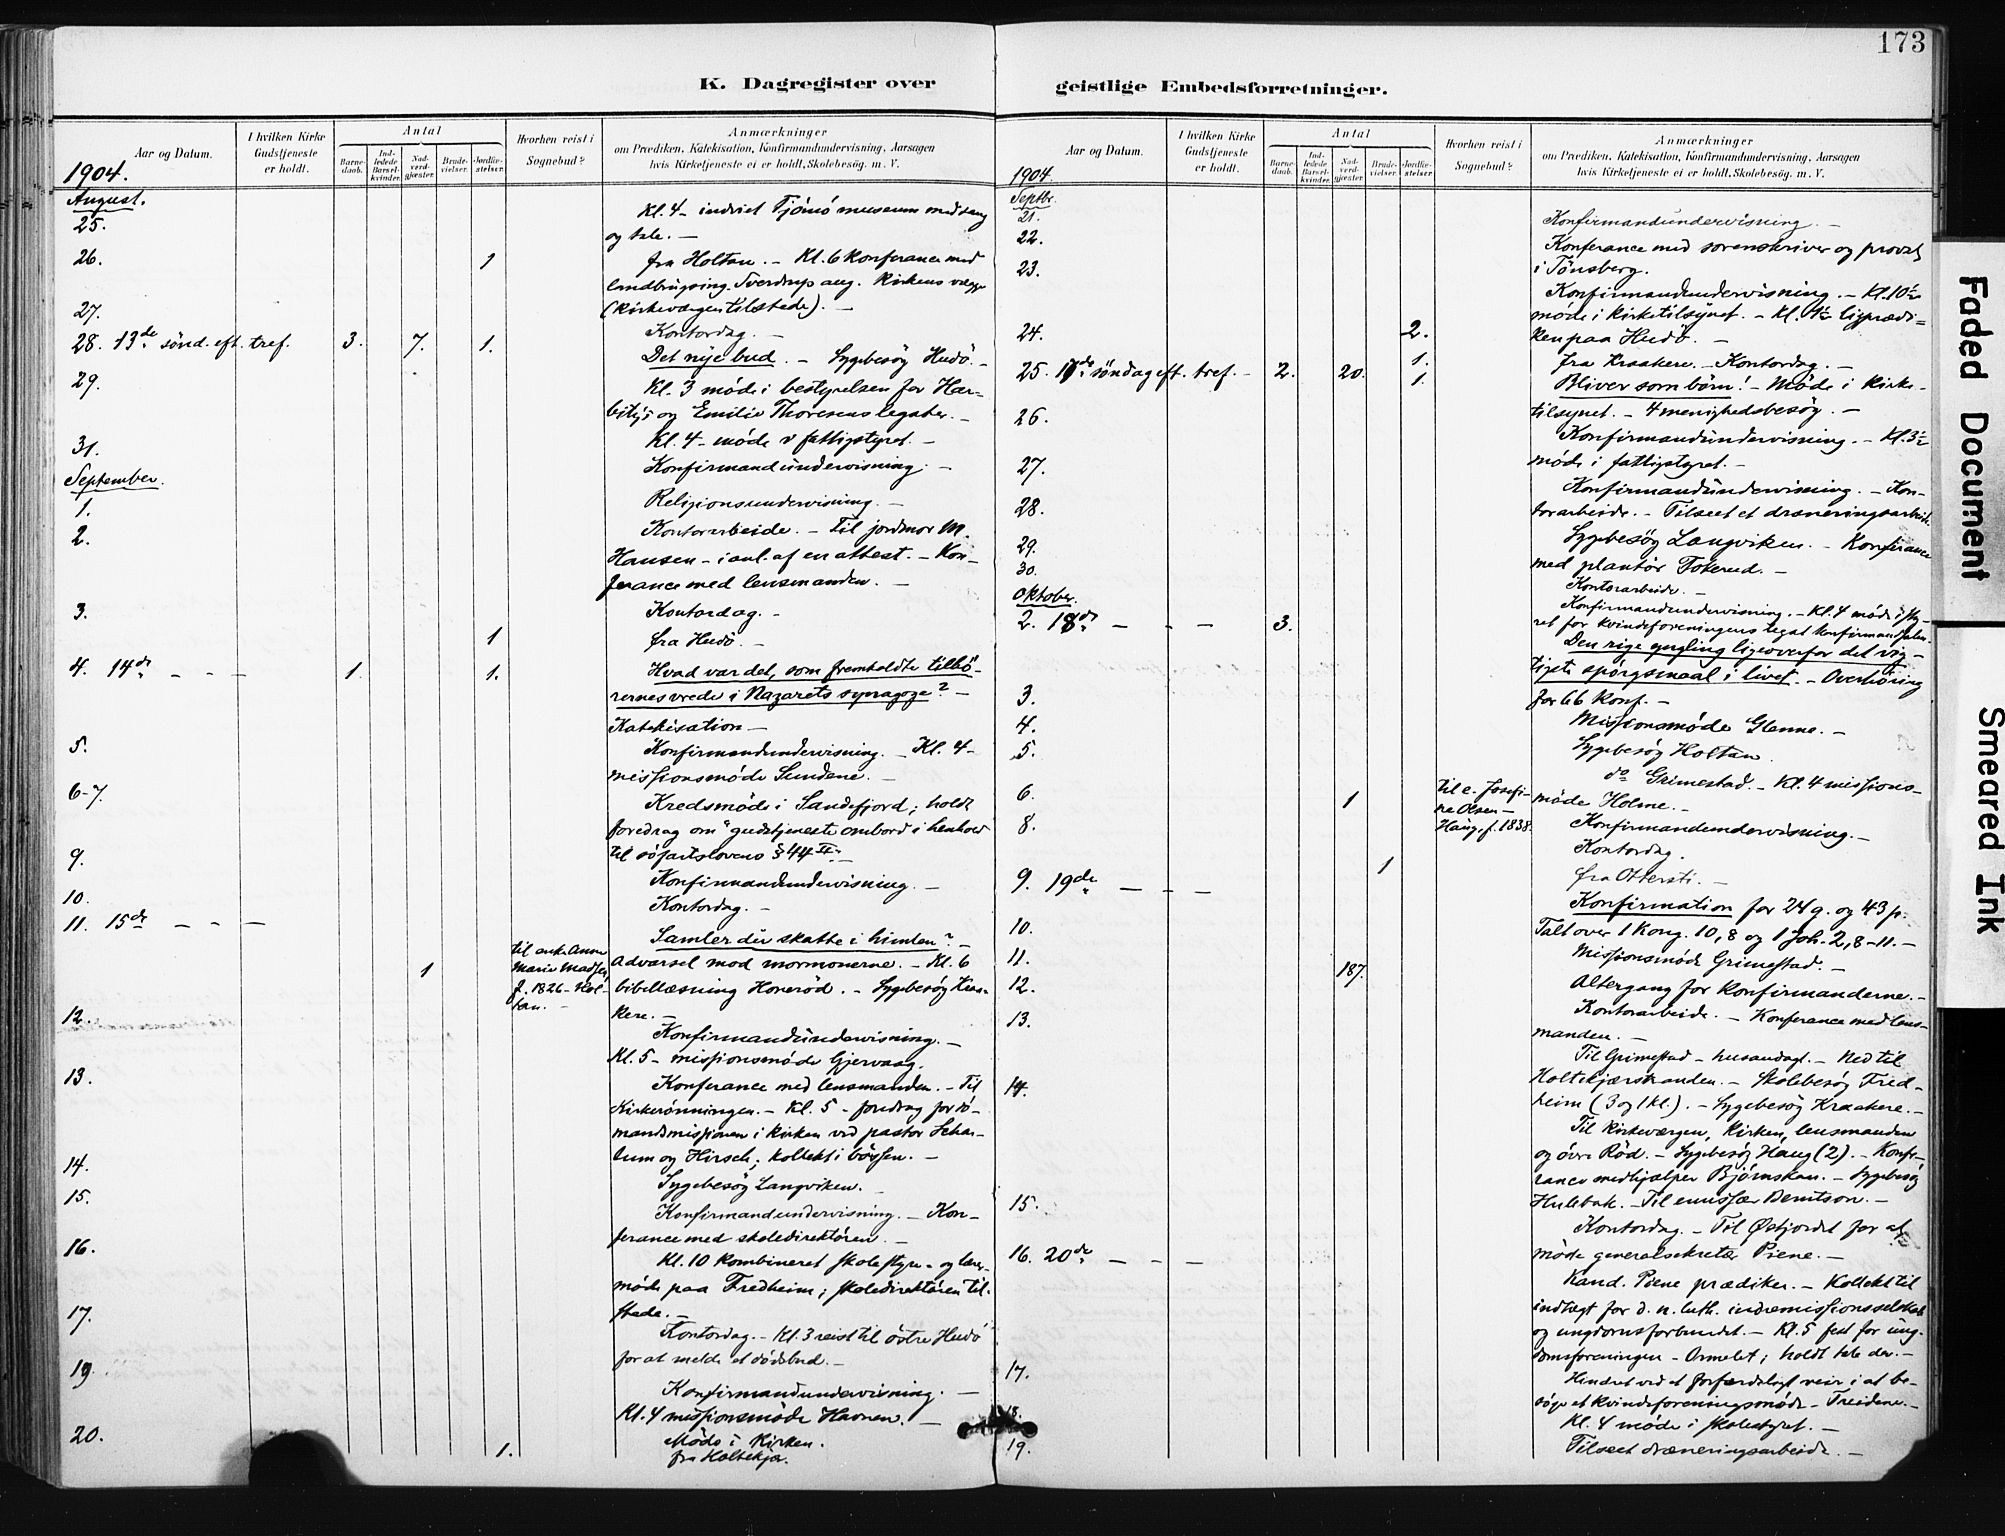 173
K. Dagregister over geistlige Embedsforretninger.
Aar og Datum.
I hvilken Kirke Gudstjeneste er holdt.
Antal
Barne-daab.
Ind-ledede Barsel-kvinder.
Nad-verd-gjæster.
Brude-vielser.
Jordfæ-stelser.
Hvorhen reist i Sognebud?
Anmærkninger
om Prædiken, Katekisation, Konfirmandundervisning, Aarsagen
hvis Kirketjeneste ei er holdt, Skolebesøg. m. V.
1904.
August.
25. Kl. 4 - indviet Tjömö museum med sang
og tale. -
26. 1 fra Holtan. - Kl. 6 konferance med
landbrugsing. Sverdrup ang. Kirkens vægge
(Kirkeværgen tilstede). -
27. Kontordag. -
28. 13de sönd. eft. tref. 3. 7. 1. Det nye bud. - Sygebesög Hudö. -
29. Kl. 3 möde i bestyrelsen for Har-
bitz's og Emilie Thoresens legater. -
31. Kl. 4 - möde i fattigstyret. -
Konfirmandundervisning. -
September.
1. Religionsundervisning. -
2. Kontorarbeide. - Til jordmor M.
Hansen - i anl. af en attest. - Kon-
ferance med lensmanden. -
3. Kontordag. -
1 fra Hudö. -
4. 14de - - - 1. 1. Hvad var det, som fremkaldte tilhö-
rernes vrede i Nazarets synagoge? -
Katekisation -
5. Konfirmandundervisning. - Kl. 4 -
missionsmöde Sundene. -
6-7. Kredsmöde i Sandefjord; holdt
foredrag om "gudstjeneste ombord i henhold
til söfartslovens § 44
9. Konfirmandundervisning. -
10. Kontordag. -
11. 15de - - - Samler eder skatte i himlen? -
1 til enke Anne
Marie Madsen,
f. 1826 - Hol-
tan. -
Advarsel mod mormonerne. - Kl. 6
bibellæsning Honeröd. - Sygebesög Kraa-
kere. -
12. Konfirmandundervisning. -
Kl. 5 - missionsmöde Gjervaag.
13. Konferance med lensmanden. - Til
Kirkerönningen. - Kl. 5 - foredrag for sö-
mandsmissionen i kirken ved pastor Schar-
tum og Hirsch; kollekt i bössen. -
14. Sygebesög Langviken. -
15. Konfirmandundervisning. - Kon-
ferance med skoledirektören. -
16. Kl. 10 kombineret skolestyre- og lærer-
möde paa Fredheim; skoledirektören til-
stede. -
17. Kontordag. - Kl. 3 reist til östre Hudö
for at melde et dödsbud. -
19. Konfirmandundervisning. -
Kl. 4 missionsmöde Havnen. -
20. Möde i kirken.
1. fra Holtekjær.
Aar og Datum.
I hvilken Kirke Gudstjeneste er holdt.
Antal
Barne-daab.
Ind-ledede Barsel-kvinder.
Nad-verd-gjæster.
Brude-vielser.
Jordfæ-stelser.
Hvorhen reist i Sognebud?
Anmærkninger
om Prædiken, Katekisation, Konfirmandundervisning, Aarsagen
hvis Kirketjeneste ei er holdt, Skolebesøg. m. V.
1904.
Septbr.
21. Konfirmandundervisning. -
22. Konferance med sorenskriver og provst
i Tönsberg.
23. Konfirmandundervisning. - Kl. 10½
möde i kirketilsynet. - Kl. 4½ ligprædi-
2. ken paa Hudö. -
24. 1. fra Kraakere. - Kontordag. -
25. 17de söndag eft. tref. - 2. 20. 1. Bliver som börn! - Möde i kirke-
tilsynet. - 4 menighedsbesög. -
26. Konfirmandundervisning. - Kl. 3½
möde i fattigstyret. -
27. Konfirmandundervisning. - Kon-
torarbeide. - Tilseet et dræneringsarbeide.
28. Sygebesög Langviken. - Konferance
med plantör Fokerud. -
29. Kontorarbeide. -
30. Konfirmandundervisning. - Kl. 4 möde i sty-
ret for kvindeforeningens legat
Oktober.
2. 18de - - - 3. Den rige yngling ligeoverfor det vig-
tigste spörgsmaal i livet. - Overhöring
for 66 konf. -
3. Missionsmöde Glenne. -
4. Sygebesög Holtan
5. do Grimestad. - Kl. 4 missions-
möde Holme. -
6. 1 til e. Josefi-
ne Olsen -
Haug, f. 1838.
Konfirmandundervisning. -
8. Kontordag.
1 fra Ottersti. -
9. 19de - - - Konfirmation for 24 g. og 43 p.
Talt over 1 Kong. 10, 8 og 1 Joh. 2, 8-11. -
10. Missionsmöde Grimestad. -
11. 187. Altergang for konfirmanderne. -
12. Kontorarbeide. - Konferance med lens-
manden. -
13. Til Grimestad - husandagt. - Ned til
Holtekjærstranden. - Skolebesög Fred-
heim (3 og 1 kl.). - Sygebesög Kraakere. -
14. Til kirkeværgen, kirken, lensmanden
og övre Röd. - Sygebesög Haug (2). - Konfe-
rance medhjælper Björnskau. - Sygebesög
Hulebak. - Til emissær Berntson. -
15. Kontordag. - Til Østfjordet for at
möde generalsekretær Piene. -
16. 20de - - - Kand. Piene prædiker. - Kollekt til
indtægt for d. n. luth. indremissionsselskab
og ungdomsforbundet. - Kl. 5 fest for ung-
domsforeningen - Ormelet; holdt tale der. -
17. Hindret ved et forfærdeligt veir i at be-
söge et kvindeforeningsmöde - Treidene. -
18. Kl. 4 möde i skolestyret. -
19. Tilseet dræneringsarbeide. -
Faded Document
Smeared Ink